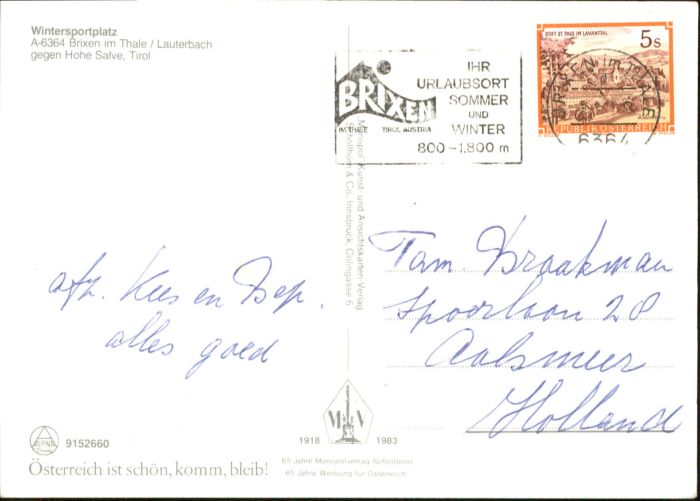 Wintersportplatz
A-6364 Brixen im Thale / Lauterbach
gegen Hohe Salve, Tirol
STIFT ST. PAUL IM LAVANTTAL
5s
REPUBLIK ÖSTERREICH
BRIXEN im THALE
6364
BRIXEN
IM THALE TIROL AUSTRIA
IHR
URLAUBSORT
SOMMER
UND
WINTER
800-1.800 m
Monopol Kunst- und Ansichtskarten-Verlag
Schöllhorn & Co., Innsbruck, Colingasse 6
afz. Kees en Bep.
alles goed
Tam Braakman
Spoorlaan 28
Aalsmeer
Holland
ALPINA
9152660
Österreich ist schön, komm, bleib!
M V
1918 1983
65 Jahre Monopolverlag Schöllhorn
65 Jahre Werbung für Österreich